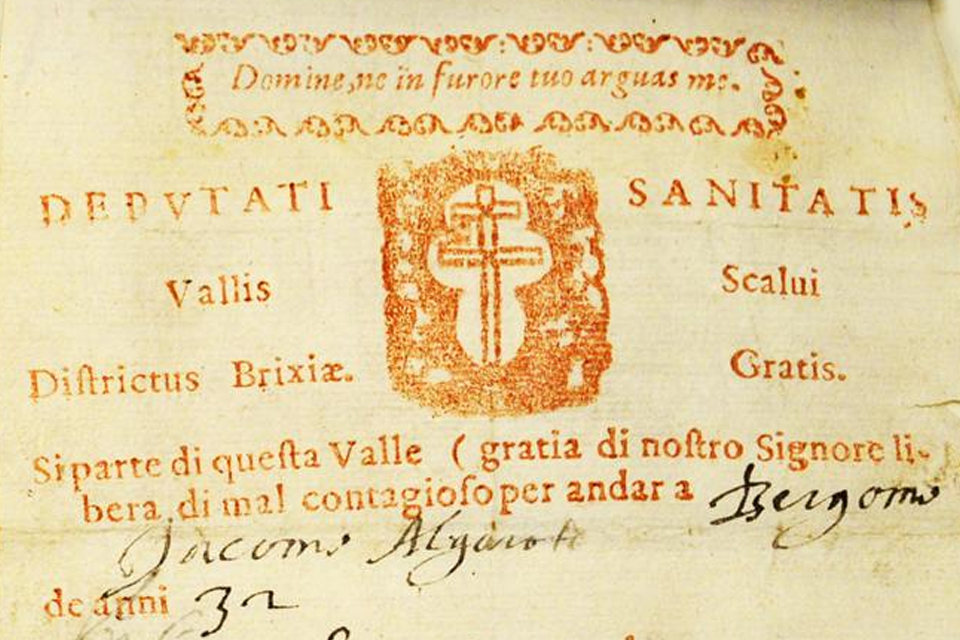 Domine, ne in furore tuo arguas me.
DEPVTATI SANITATIS
Vallis Scalui
Diſtrictus Brixiæ. Gratis.
Si parte di queſta Valle ( gratia di noſtro Signore li-
bera di mal contagioſo per andar a Bergomo
Jacomo
de anni 32